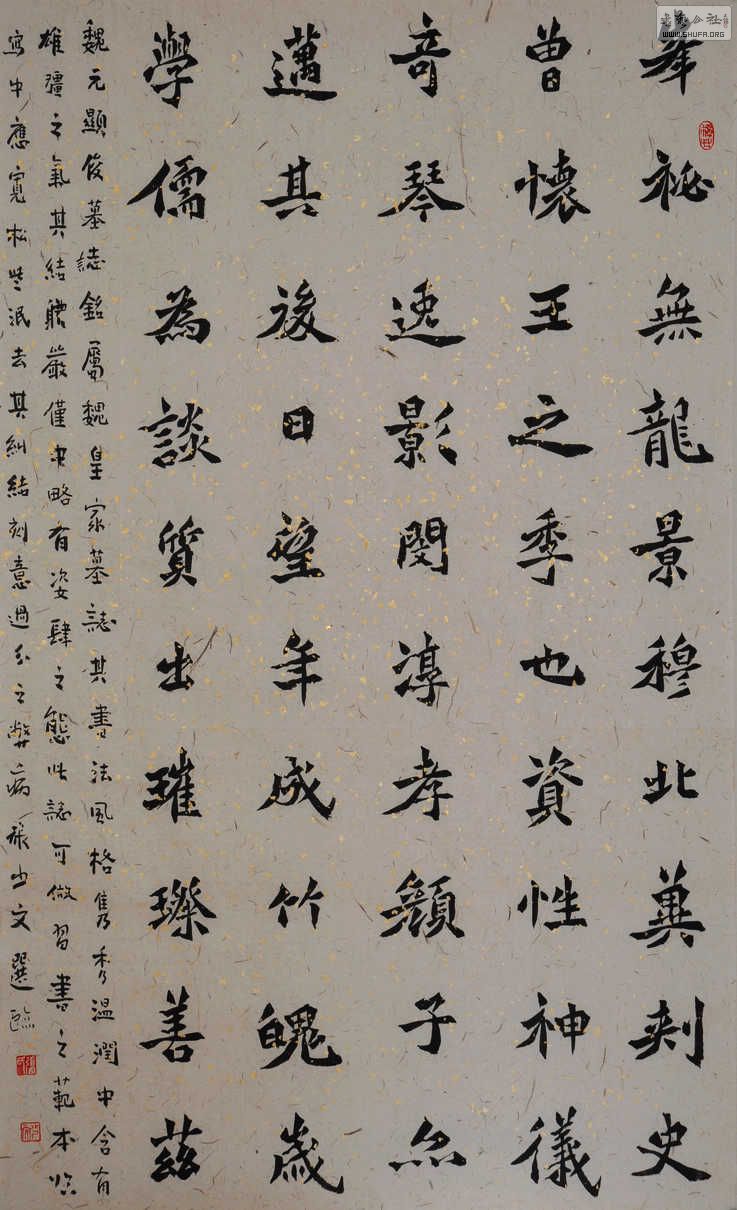 峯祕無龍景穆北冀刾史
曾懷王之季也資性神儀
竒琴逸影閔淳孝顏子㒵
邁其後日望年成竹㒵歲
學儒為談質出璀璨善茲
魏元顯俊墓誌銘屬魏皇家墓誌其書法風格雋秀溫潤中含有
雄彊之氣其結體嚴僅中略有姿肆之態此誌可做習書之範本临
寫中應寬松些泯去其糾結刻意過分之弊病張少文選臨
WWW.SHUFA.ORG